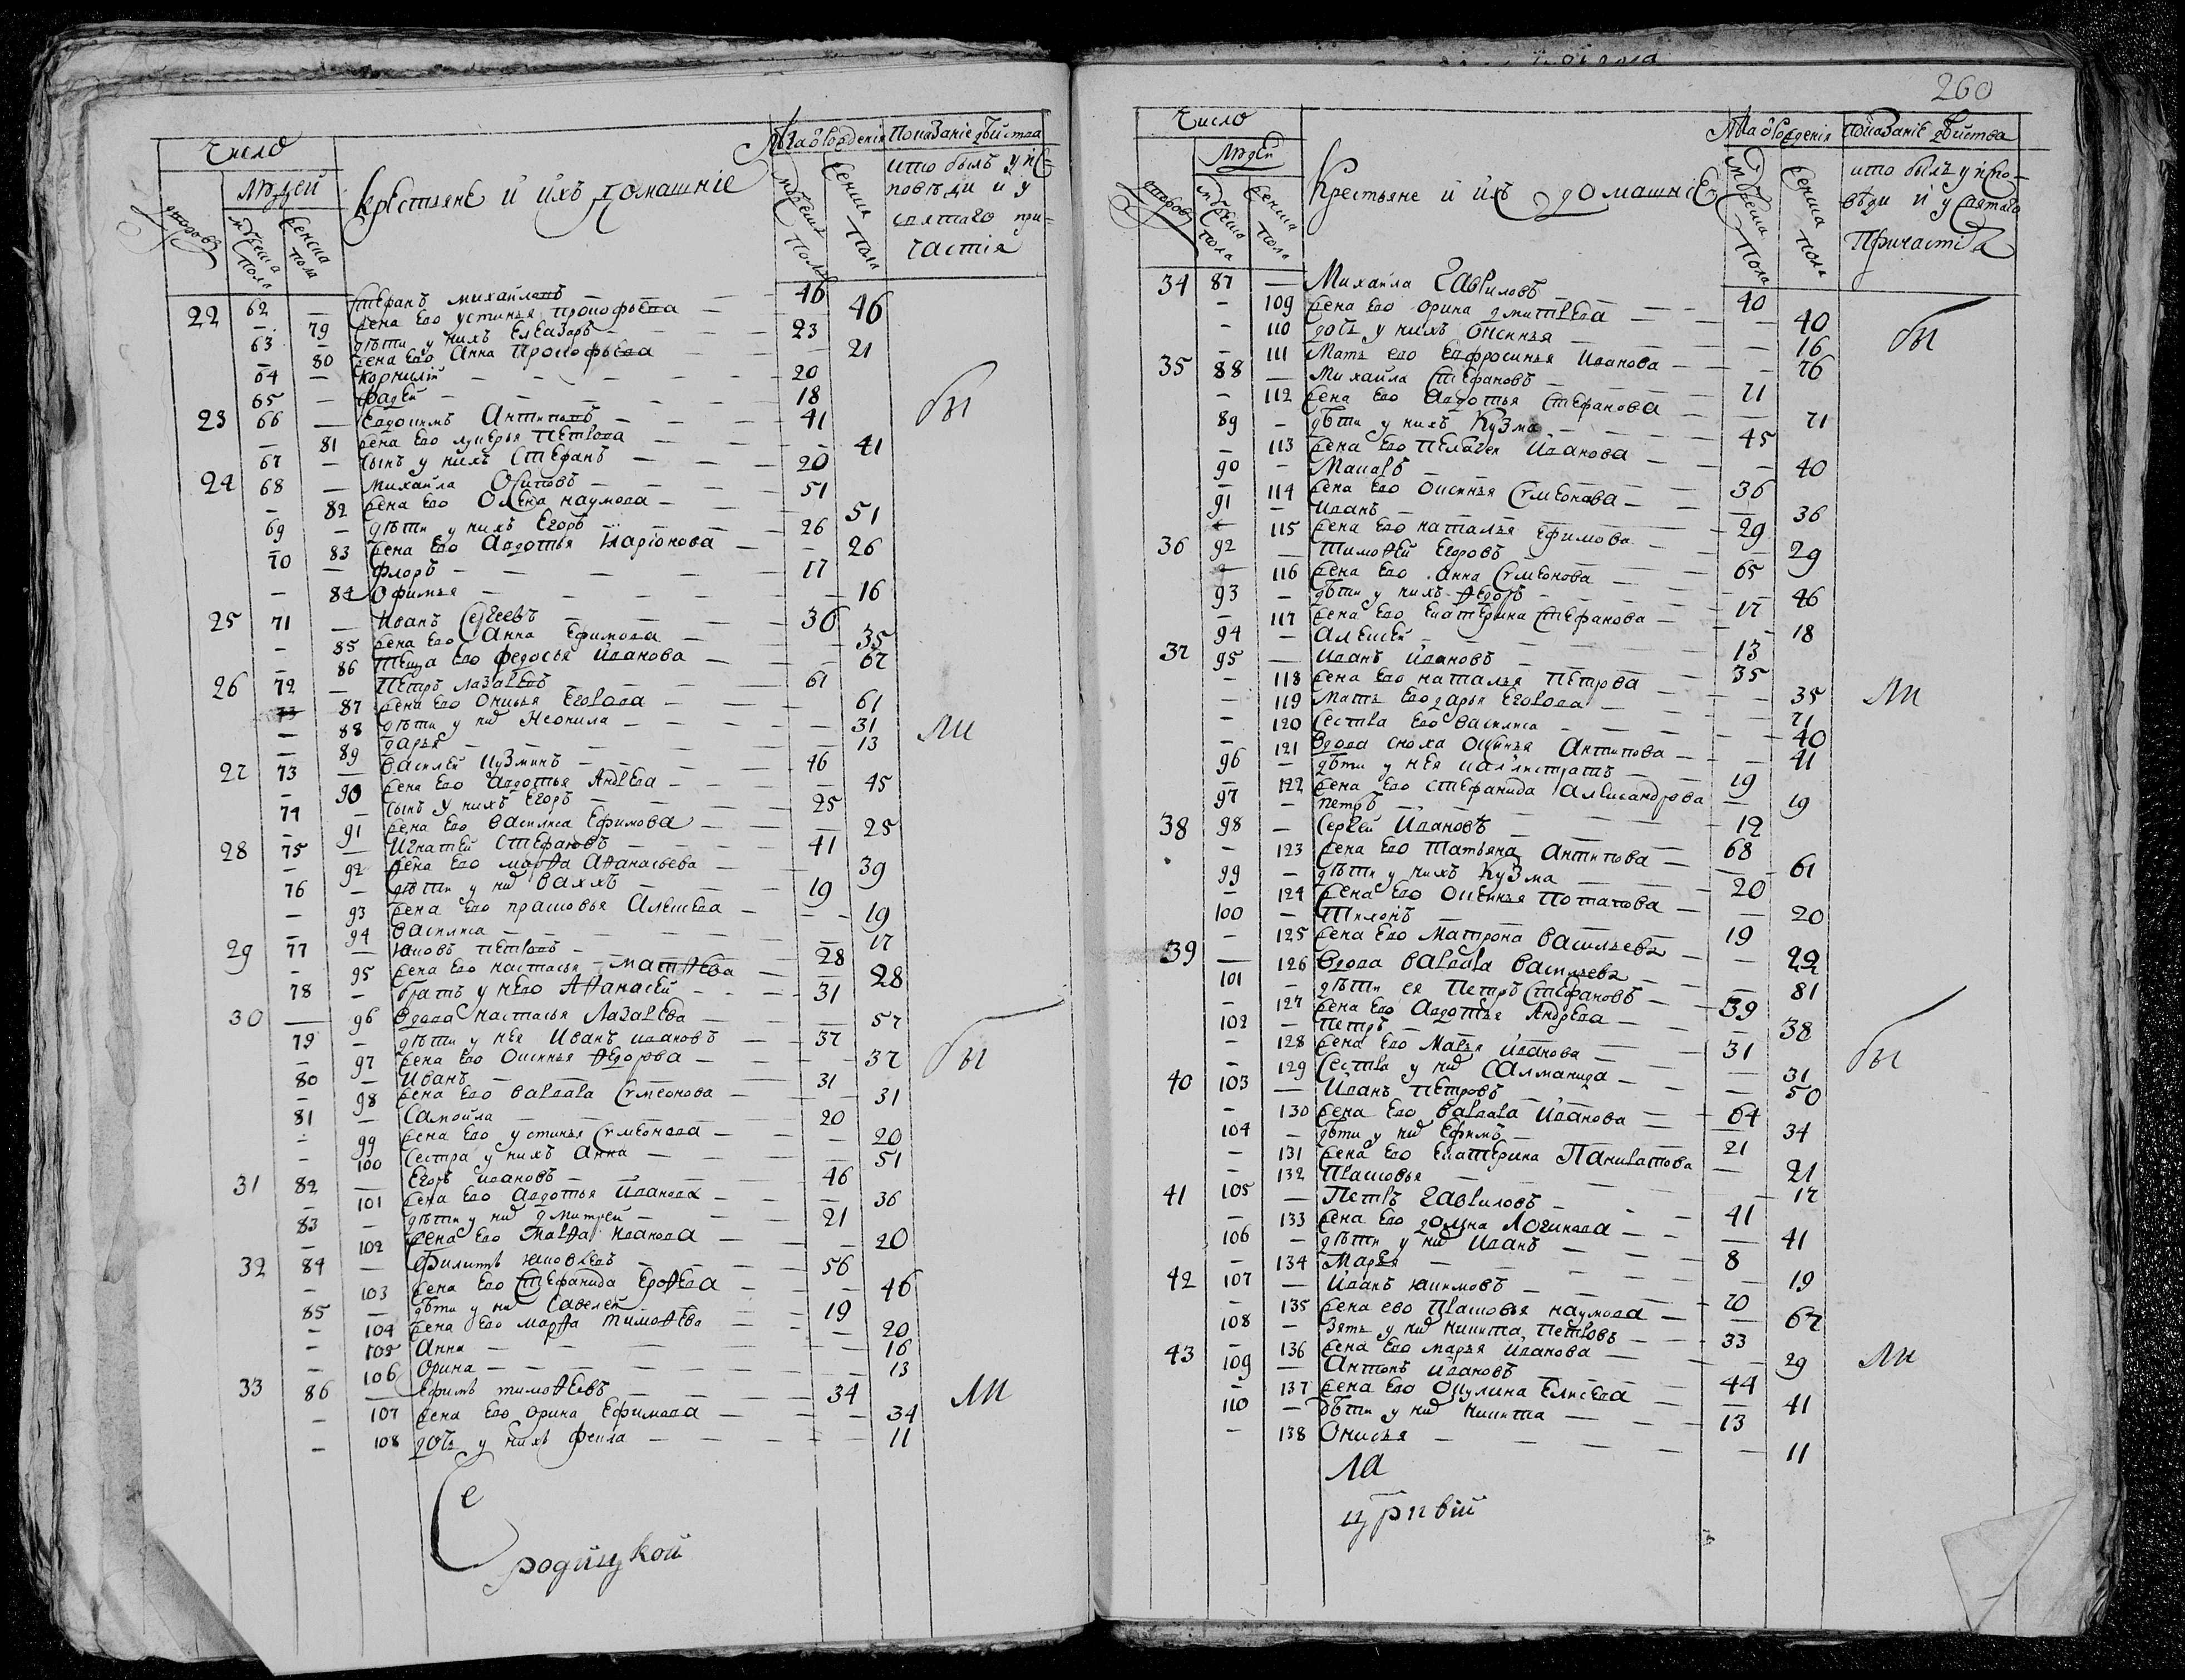 260
Число
Людей
Крестьяне и ихъ домашніе
Показаніе действа
что былъ у испо-
веди и у
святаго при-
частія
дворовъ
мужеска пола
женска пола
22 62 — Стефанъ Михайловъ — 46
— 79 жена ево Устинья Прокофьева — 46
63 — дѣти у нихъ Елеазаръ — 23
— 80 жена ево Анна Прокофьева — 21
64 — Корнилій — 20
65 — Фадей — 18
бы
23 66 — Евдокимъ Антиповъ — 41
— 81 жена ево Лукерья Петрова — 41
67 — сынъ у нихъ Стефанъ — 20
24 68 — Михайла Осиповъ — 51
— 82 жена ево Олена Наумова — 51
69 — дѣти у нихъ Егоръ — 26
— 83 жена ево Авдотья Иларіонова — 26
70 — Флоръ — 17
— 84 Офимья — 16
25 71 — Иванъ Сергеевъ — 36
— 85 жена ево Анна Ефимова — 35
— 86 теща ево Федосья Иванова — 67
26 72 — Петръ Лазаревъ — 61
— 87 жена ево Онисья Егорова — 61
— 88 дѣти у них Неонила — 31
— 89 Дарья — 13
ли
27 73 — Василей Кузминъ — 46
— 90 жена ево Авдотья Андрева — 45
74 — сынъ у нихъ Егоръ — 25
— 91 жена ево Василиса Ефимова — 25
28 75 — Игнатей Стефановъ — 41
— 92 жена ево Марѳа Аѳанасьева — 39
76 — дѣти у них Ваххъ — 19
— 93 жена ево Прасковья Алексева — 19
— 94 Василиса — 17
29 77 — Яковъ Петровъ — 28
— 95 жена ево Настасья Матѳева — 28
78 — братъ у нево Аѳанасей — 31
30 — 96 вдова Настасья Лазарева — 57
79 — дѣти у нея Иванъ Ивановъ — 37
— 97 жена ево Оксинья Ѳедорова — 37
бы
80 — Иванъ — 31
— 98 жена ево Варвара Сѵмеонова — 31
81 — Самойла — 20
— 99 жена ево Устинья Сѵмеонова — 20
— 100 сестра у нихъ Анна — 51
31 82 — Егоръ Ивановъ — 46
— 101 жена ево Авдотья Иванова — 36
83 — дѣти у них Дмитрей — 21
— 102 жена ево Марѳа Иванова — 20
32 84 — Филипъ Яковлевъ — 56
— 103 жена ево Стефанида Ероѳева — 46
85 — дѣти у них Савелей — 19
— 104 жена ево Марѳа Тимоѳева — 20
— 105 Анна — 16
— 106 Орина — 13
33 86 — Ефимъ Тимоѳеевъ — 34
ли
— 107 жена ево Орина Ефимова — 34
— 108 дочь у нихъ Фекла — 11
Се
родицкой
Число
Людей
Крестьяне и ихъ домашніе
Показаніе действа
что былъ у испо-
веди и у святаго
Причастія
дворовъ
мужеска пола
женска пола
34 87 — Михайла Гавриловъ — 40
— 109 жена ево Орина Дмитрева — 40
— 110 дочь у нихъ Оксинья — 16
— 111 мать ево Евфросинья Иванова — 76
бы
35 88 — Михайла Стефановъ — 71
— 112 жена ево Авдотья Стефанова — 71
89 — дѣти у нихъ Кузма — 45
— 113 жена ево Пелагея Иванова — 40
90 — Макаръ — 36
— 114 жена ево Оксинья Сѵмеонова — 36
91 — Иванъ — 29
— 115 жена ево Наталья Ефимова — 29
36 92 — Тимоѳей Егоровъ — 65
— 116 жена ево Анна Сѵмеонова — 46
93 — дѣти у нихъ Ѳедоръ — 17
— 117 жена ево Екатерина Стефанова — 18
94 — Алексей — 13
37 95 — Иванъ Ивановъ — 35
— 118 жена ево Наталья Петрова — 35
ли
— 119 мать ево Дарья Егорова — 71
— 120 сестра ево Василиса — 40
— 121 вдова сноха Оксинья Антипова — 41
96 — дѣти у нея Калистратъ — 19
— 122 жена ево Стефанида Александрова — 19
97 — Петръ — 12
38 98 — Сергей Ивановъ — 68
— 123 жена ево Татьяна Антипова — 61
99 — дѣти у нихъ Кузма — 20
— 124 жена ево Оксинья Потапова — 20
100 — Тихонъ — 19
— 125 жена ево Матрона Васильева — 22
39 — 126 вдова Варвара Васильева — 81
101 — дѣти ея Петръ Стефановъ — 39
— 127 жена ево Авдотья Андрева — 38
102 — Петръ — 31
— 128 жена ево Марья Иванова — 31
бы
— 129 сестра у них Саламанида — 50
40 103 — Иванъ Петровъ — 64
— 130 жена ево Варвара Иванова — 34
104 — дѣти у них Ефимъ — 21
— 131 жена ево Екатерина Панкратова — 21
— 132 Прасковья — 17
41 105 — Петръ Гавриловъ — 41
— 133 жена ево Домна Логинова — 41
106 — дѣти у них Иванъ — 8
— 134 Марья — 19
42 107 — Иванъ Якимовъ — 70
— 135 жена ево Прасковья Наумова — 67
108 — зять у них Никита Петровъ — 33
— 136 жена ево Марья Иванова — 29
ли
43 109 — Антонъ Ивановъ — 44
— 137 жена ево Окулина Елисева — 41
110 — дѣти у них Никита — 13
— 138 Онисья — 11
ла